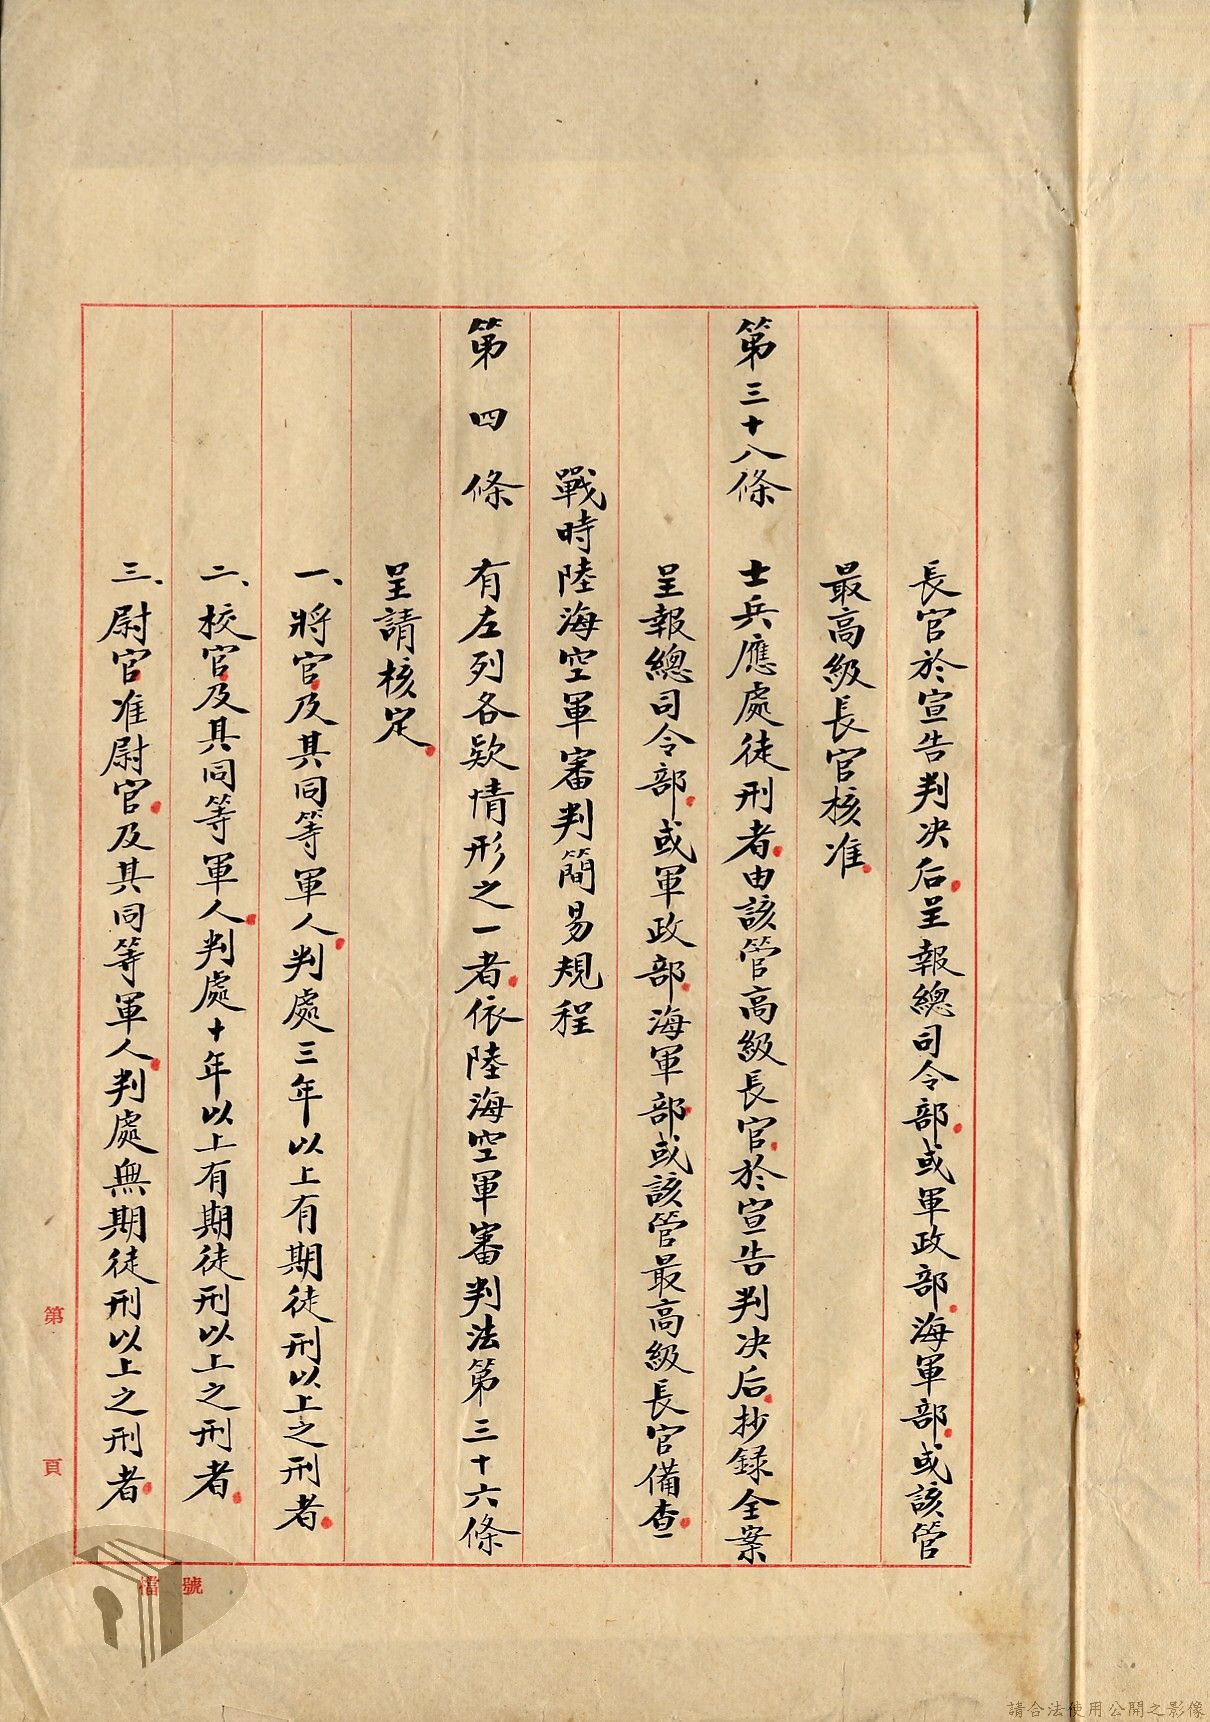 長官於宣告判決后。呈報總司令部。或軍政部。海軍部。或該管
最高級長官核准。
第三十八條　士兵應處徒刑者。由該管高級長官。於宣告判決后。抄錄全案
呈報總司令部。或軍政部。海軍部。或該管最高級長官備查。
戰時陸海空軍審判簡易規程
第四條　有左列各欵情形之一者。依陸海空軍審判法第三十六條
呈請核定。
一、將官。及其同等軍人。判處三年以上有期徒刑以上之刑者。
二、校官。及其同等軍人。判處十年以上有期徒刑以上之刑者。
三、尉官。准尉官。及其同等軍人。判處無期徒刑以上之刑者。
第　頁
檔號
請合法使用公開之影像